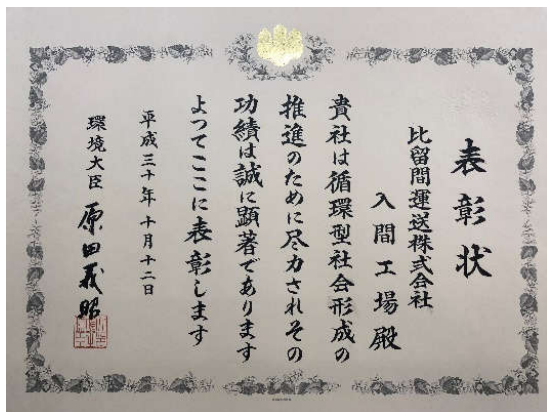 表彰状
比留間運送株式会社
入間工場殿
貴社は循環型社会形成の
推進のために尽力されその
功績は誠に顕著であります
よってここに表彰します
平成三十年十月十二日
環境大臣 原田義昭